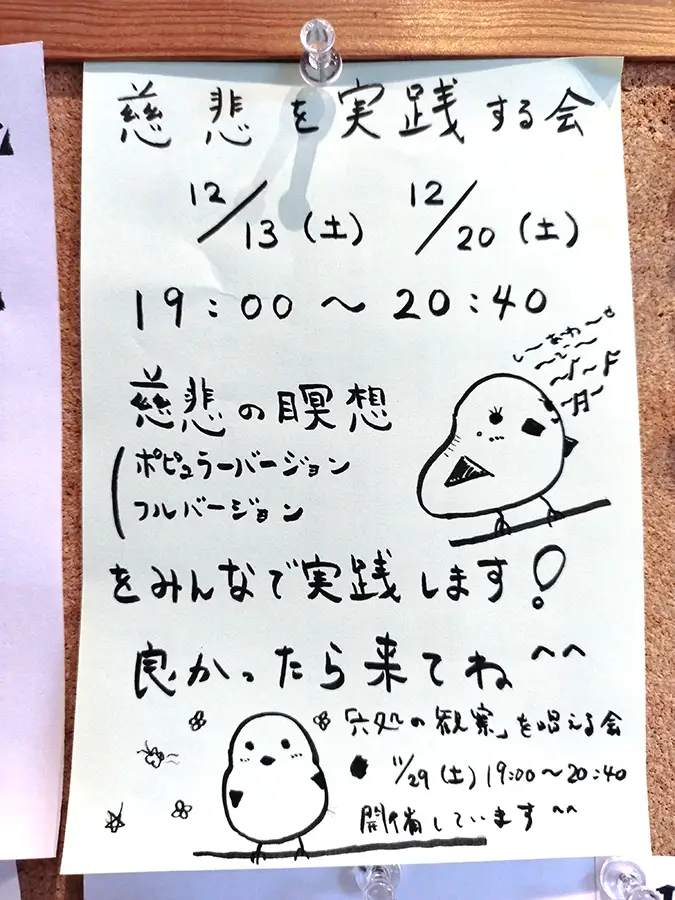 慈悲を実践する会
12/13(土) 12/20(土)
19:00〜20:40
慈悲の瞑想
ポピュラーバージョン
フルバージョン
をみんなで実践します!
良かったら来てね^^
「六処の観察」を唱える会
11/29(土)19:00〜20:40
開催しています^^